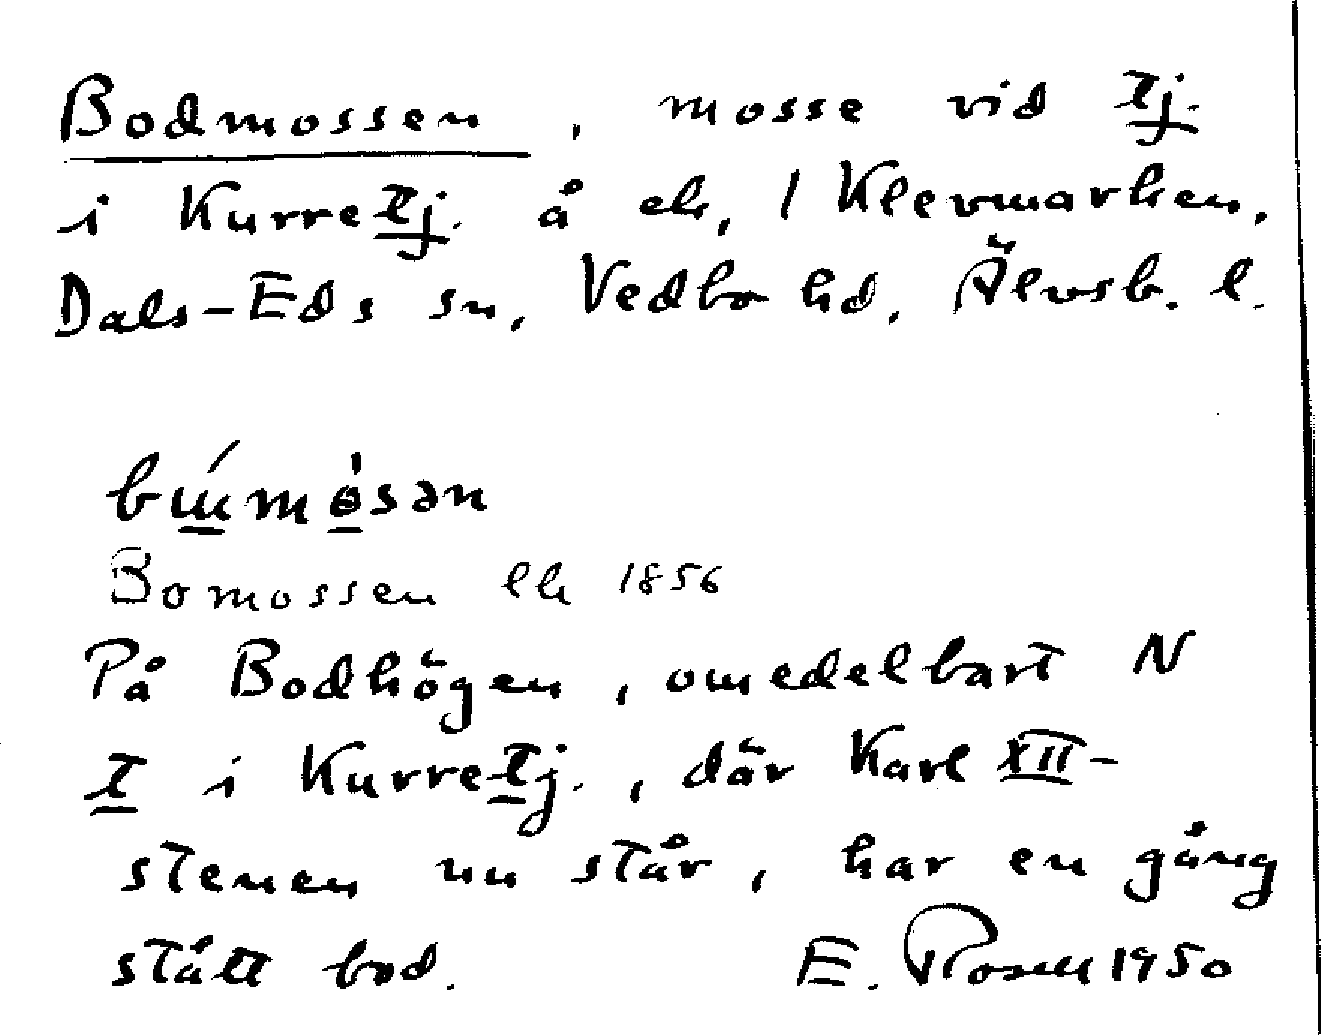 Bodmossen, mosse vid tj.
i Kurretj. å ek, 1 Klevmarken,
Dals-Eds sn, Vedbo hd, Älvsb. l.
Bomossen lk 1856
På Bodhögen, omedelbart N
t i Kurretj., där Karl XII-
stenen nu står, har en gång
stått bod. E. Rosell 1950